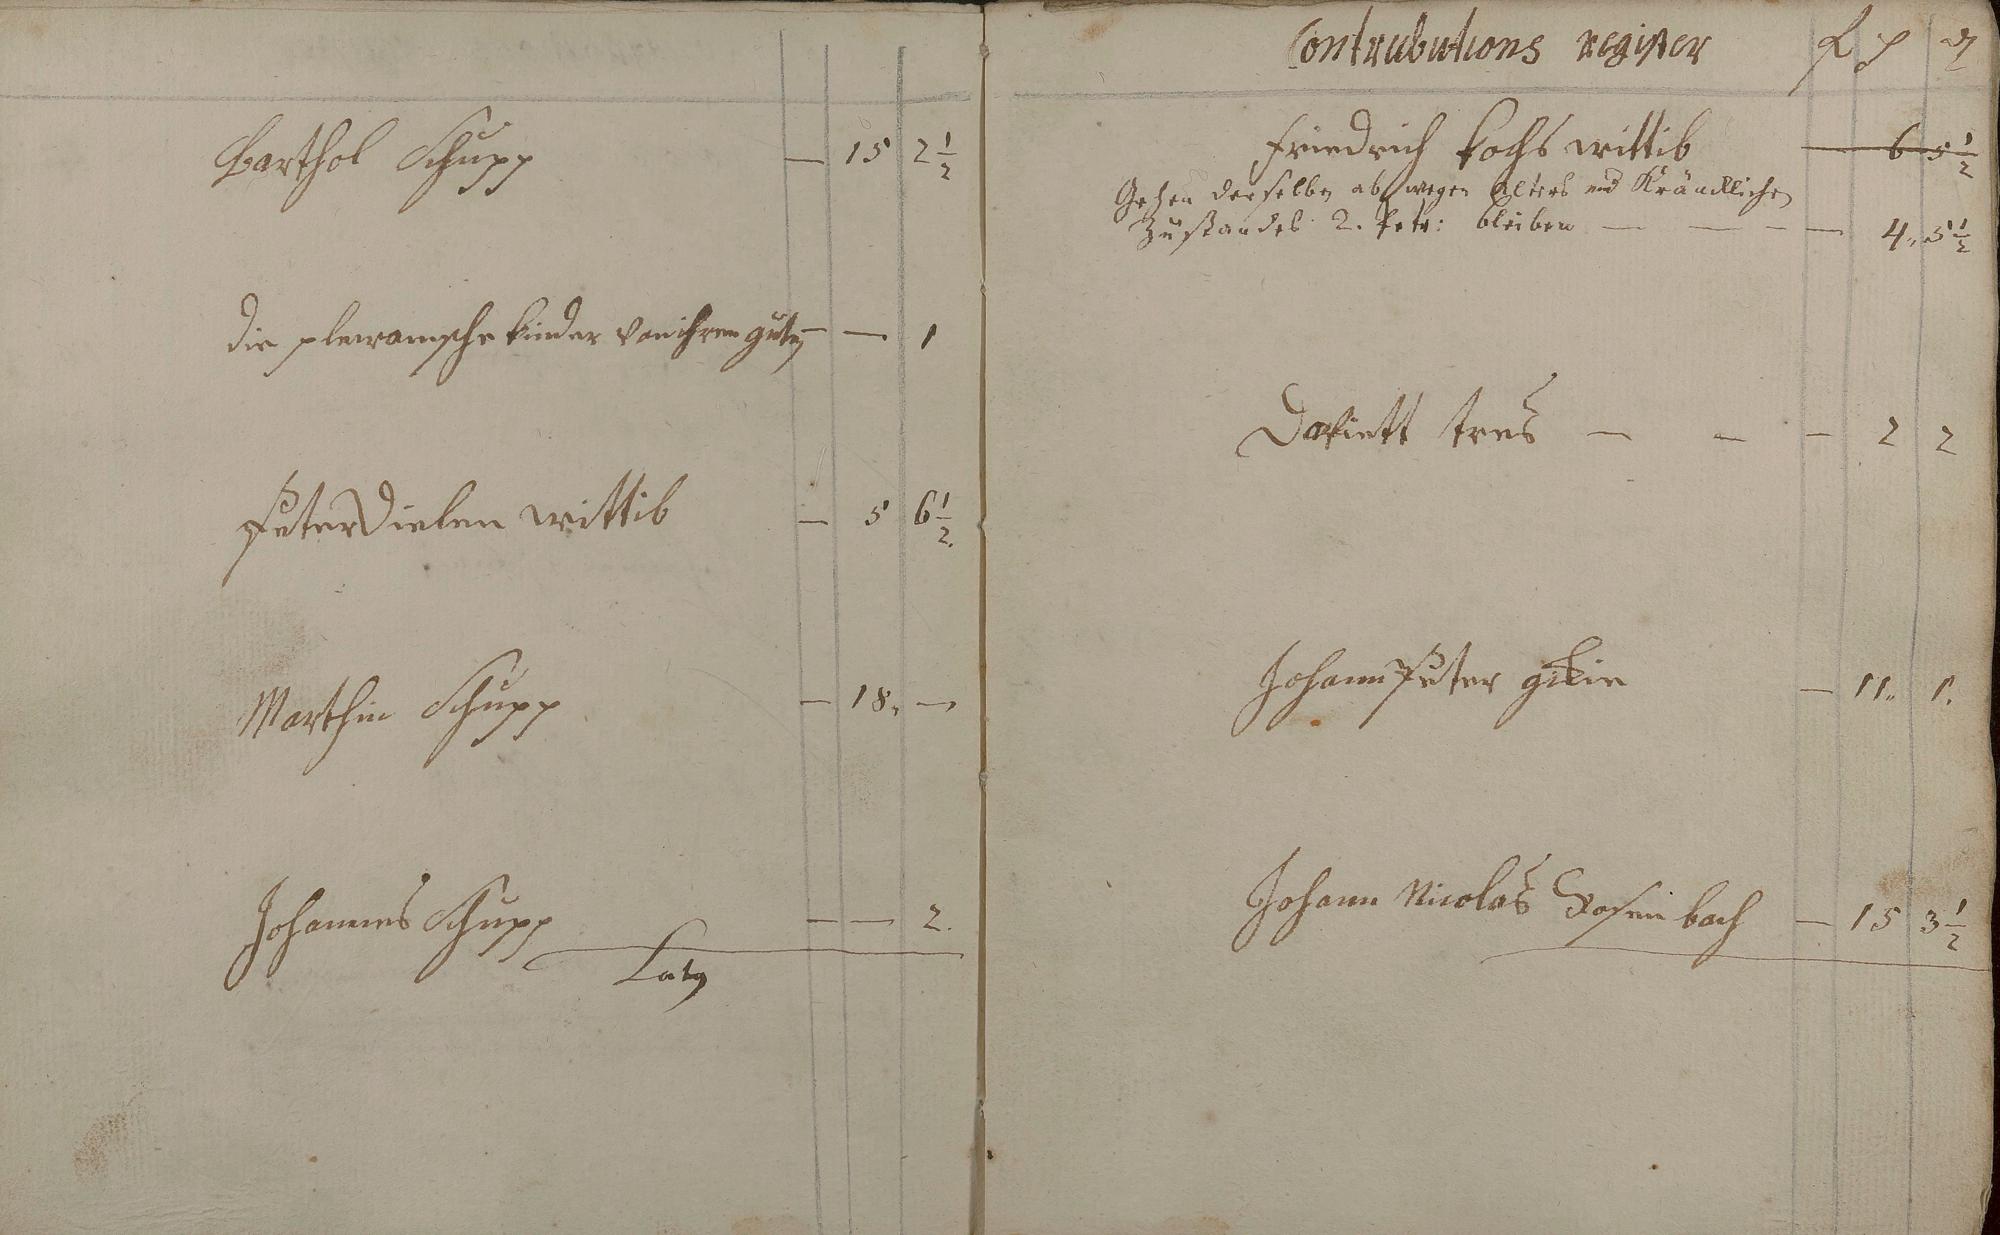 Barthol Schupp — 15 2 1/2
die plewamsche kinder von ihren guth — — 1
Peter Dielen wittib — 5 6 1/2.
Marthin Schupp — 18„ —
Johannes Schupp — — 2.
Latg
Contributions register
Friedrich Kochs wittib — 6 5 1/2
Gehen derselben ab wegen Alters und Kräncklichen
Zustandes 2. bleiben — — — — 4„ 5 1/2
Daviett — — — 2 2
Johann Peter — 11„ 1.
Johann Nicolas Rosenbach — 15 3 1/2